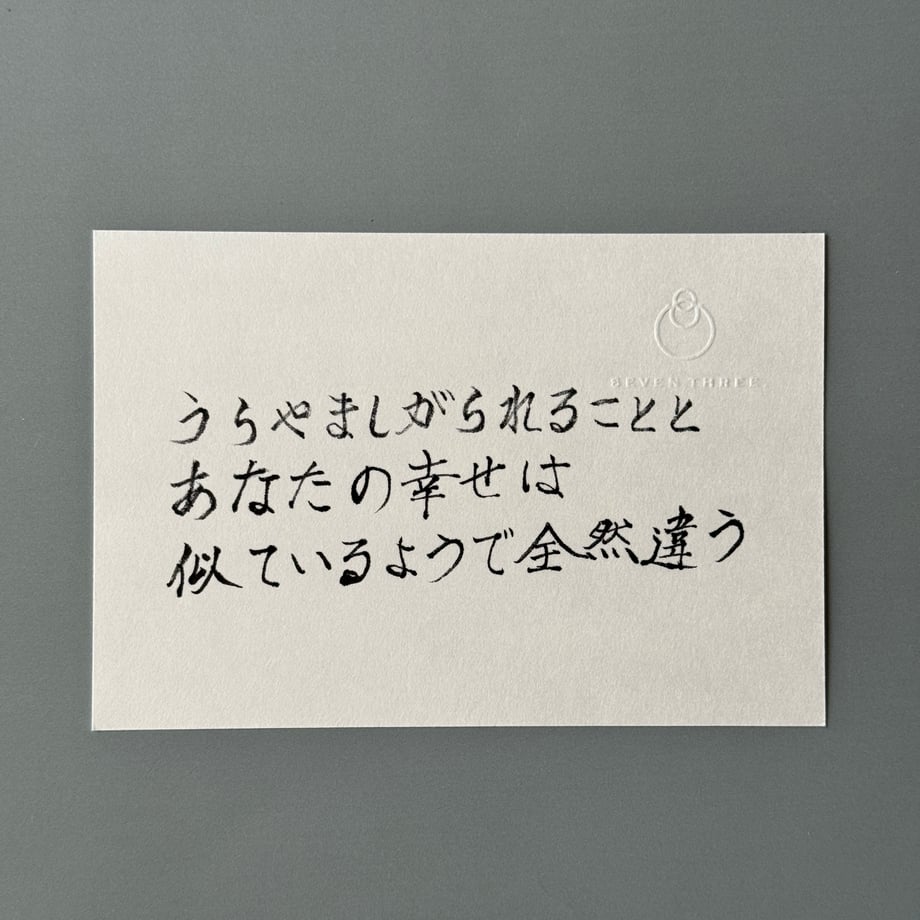 SEVEN THREE.
うらやましがられることと
あなたの幸せは
似ているようで全然違う